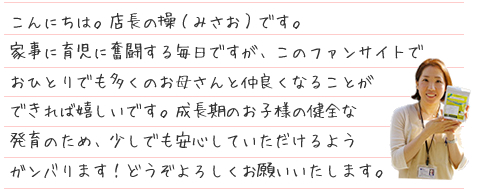 こんにちは。店長の操(みさお)です。
家事に育児に奮闘する毎日ですが、このファンサイトで
おひとりでも多くのお母さんと仲良くなることが
できれば嬉しいです。成長期のお子様の健全な
発育のため、少しでも安心していただけるよう
ガンバります!どうぞよろしくお願いいたします。